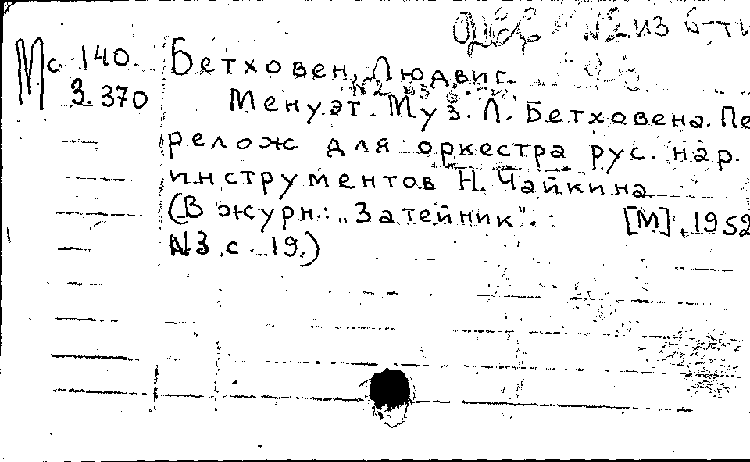 №2 из 6-ти
Мс 140. Бетховен, Людвиг.
3.370 Менуэт. Муз. Л. Бетховена. Пе
релож для оркестра рус. нар.
инструментов Н. Чайкина
(В журн.: „Затейник". [М], 1952
№3, с 19.)